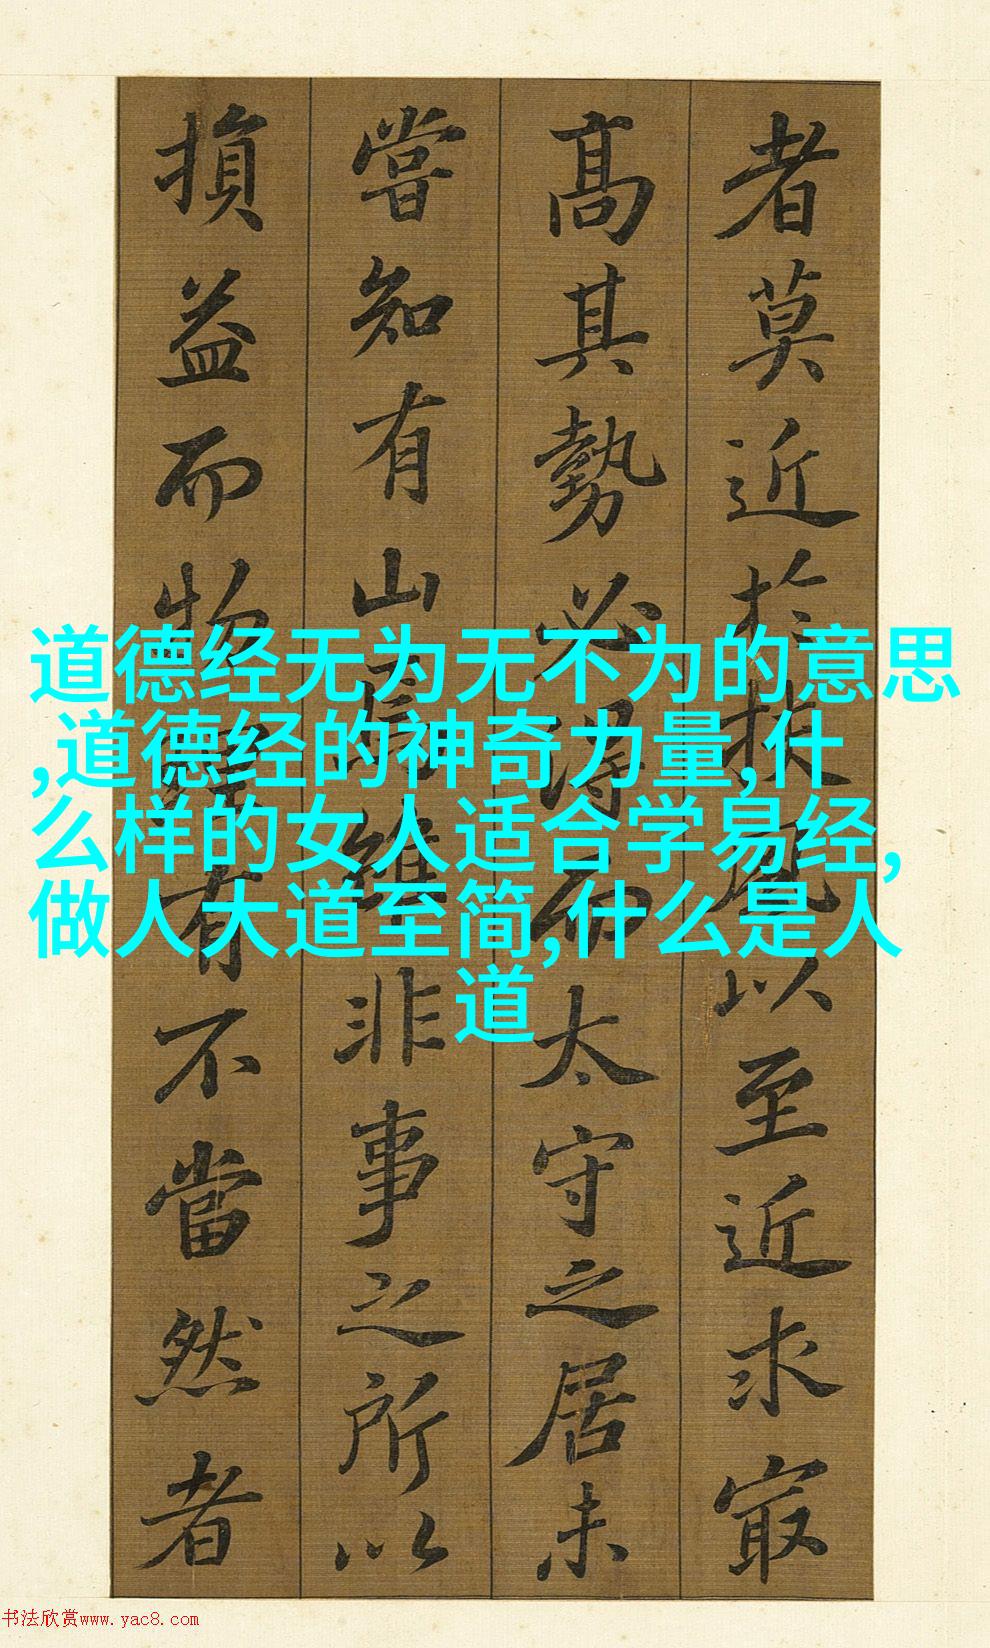 者莫近於扶風以至近求冣
高其勢必得而太守之居未
嘗知有山焉雖非事之所以
損益而物理有不當然者
道德经无为无不为的意思
,道德经的神奇力量,什
么样的女人适合学易经,
做人大道至简,什么是人
道
书法欣赏www.yac8.com